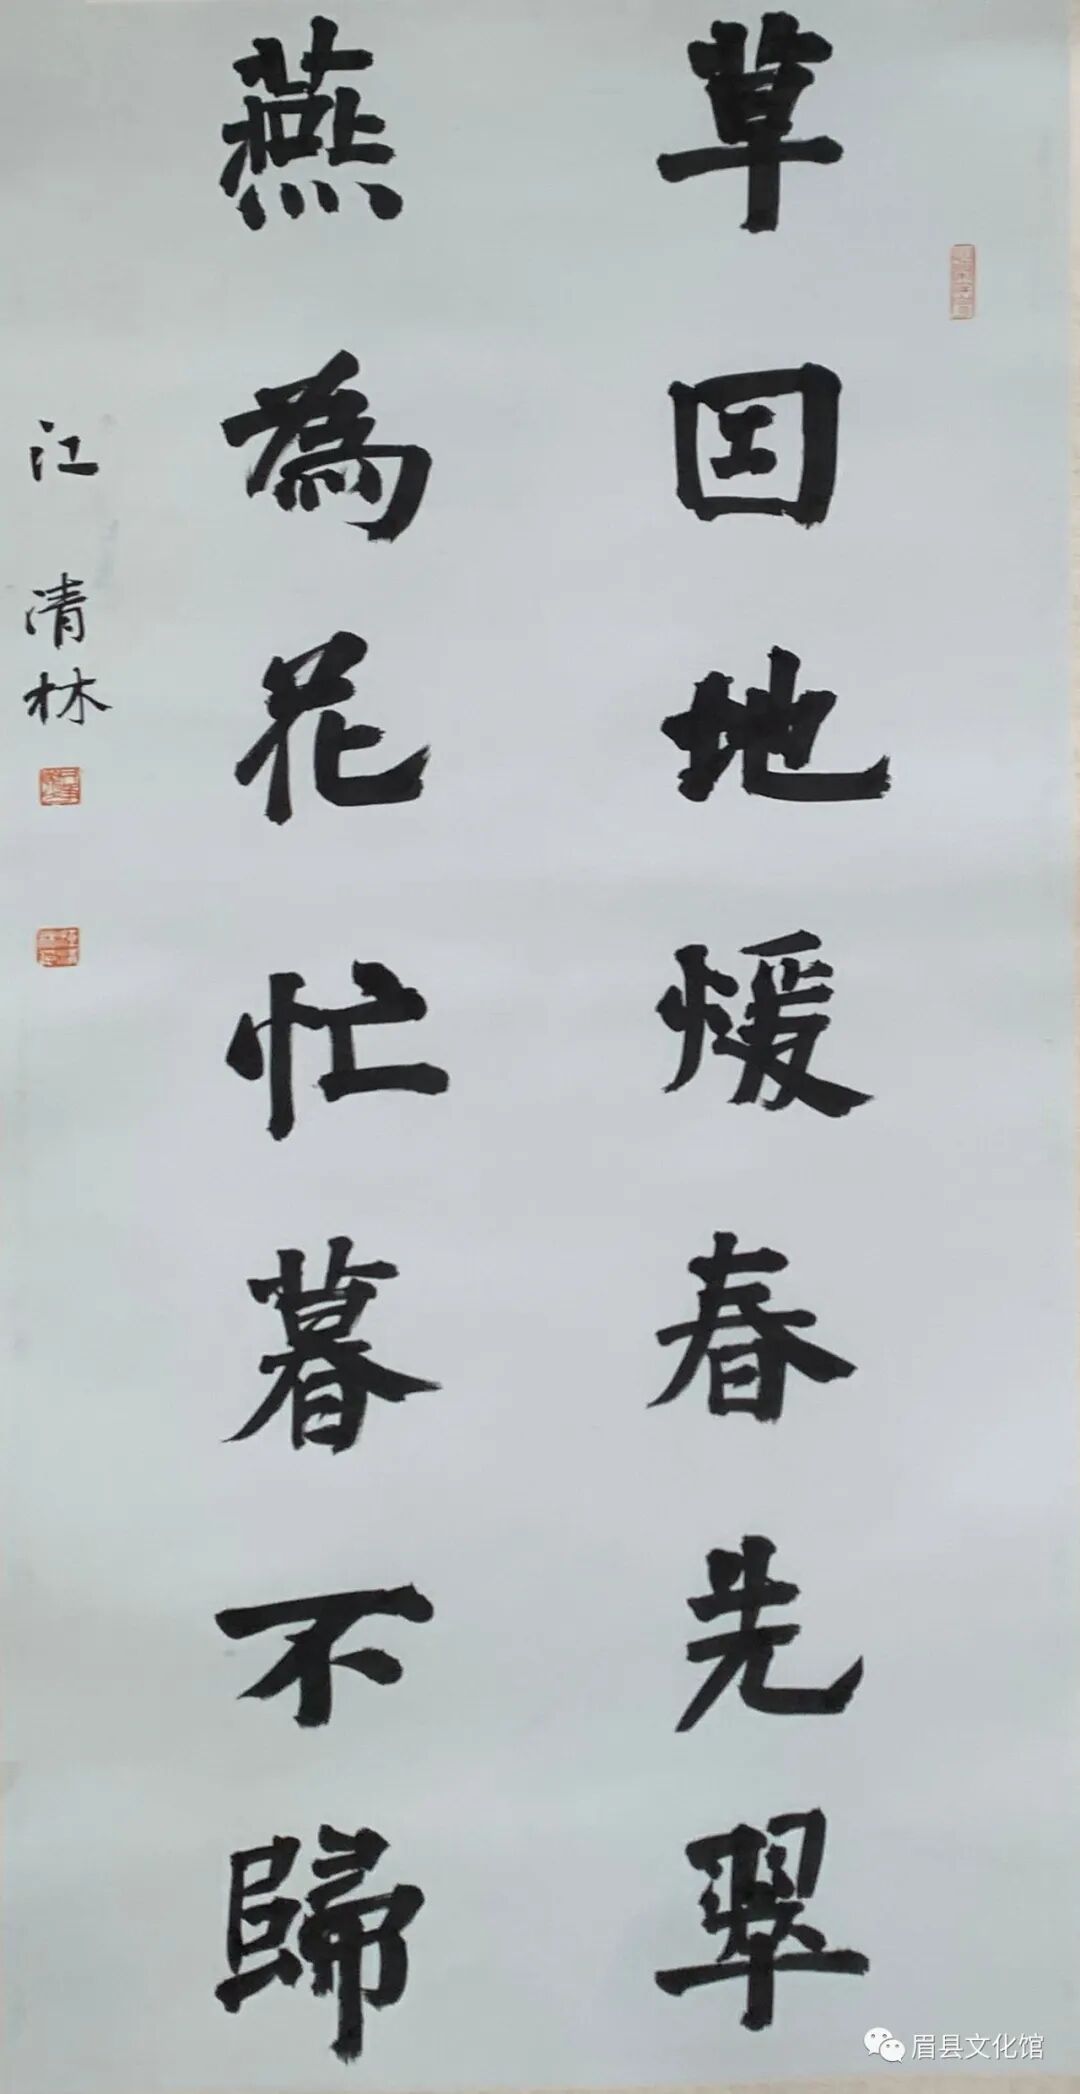 草因地煖春先翠
燕為花忙暮不歸
江清林
眉县文化馆